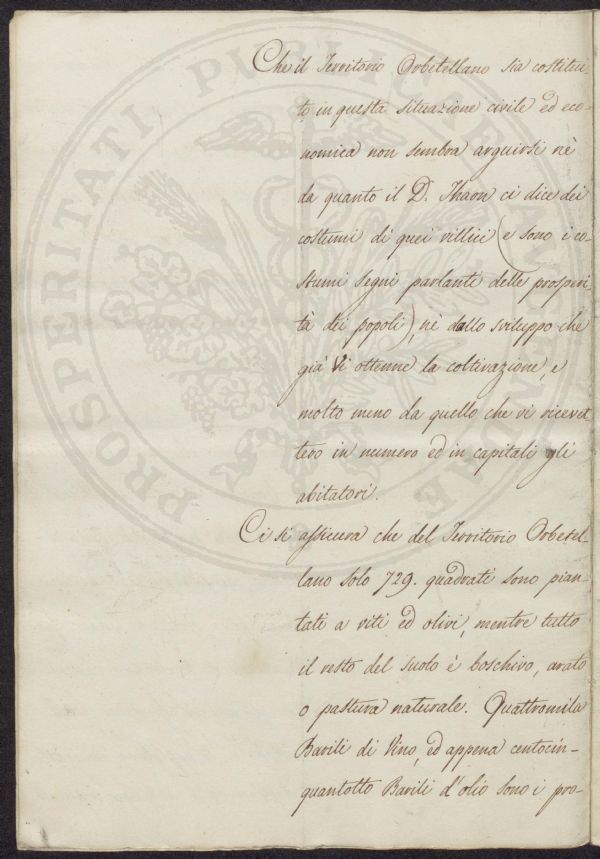 Che il Territorio Orbetellano sia costitui
to in questa situazione civile ed eco-
nomica non sembra arguirsi nè
da quanto il D. Thaon ci dice dei
costumi di quei villici (e sono i co-
stumi segni parlanti delle prosperi
tà dei popoli), nè dallo sviluppo che
già vi ottenne la coltivazione, e
molto meno da quello che vi ricevet
tero in numero ed in capitali gli
abitatori.
Ci si assicura che del Territorio Orbetel-
lano solo 729. quadrati sono pian-
tati a viti ed olivi, mentre tutto
il resto del suolo è boschivo, arato
o pastura naturale. Quattromila
Barili di Vino, ed appena centocin-
quantotto Barili d'olio sono i pro-
PROSPERITATI PUBLICAE